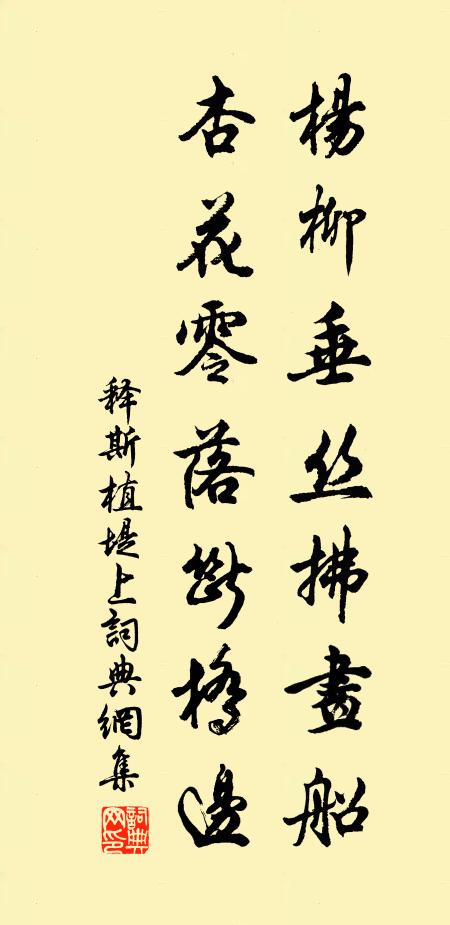 楊柳垂丝拂畫船
杏花零落斷橋邊
释斯植堤上詞典網集
詞典
网印